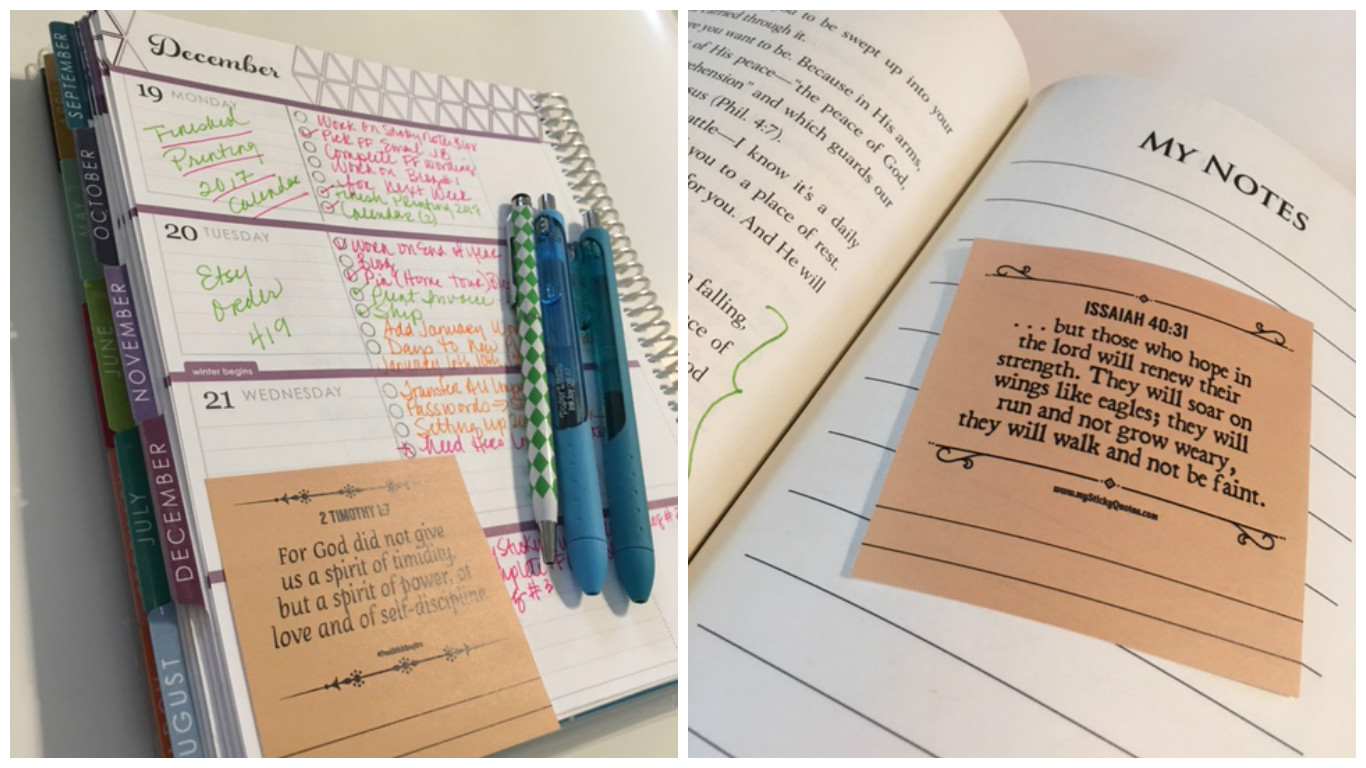 SEPTEMBER
OCTOBER
MAY
NOVEMBER
JUNE
DECEMBER
JULY
UGUST
December
19 MONDAY
Finished
Printing
2017
Calendar
Work on Sticky Notes Blog
Pick FF Email JB
Complete FF wording
Work on Blog #1
for Next Week
Finish Printing 2017
Calendar (2)
20 TUESDAY
Etsy
Order
419
Work on End of Year
Blog
Pin (Home Tour)
Print Invoice
Ship
Add January
Days to New
winter begins
21 WEDNESDAY
Transfer All
Passwords
Setting up
Need
2 TIMOTHY 1:7
For God did not give
us a spirit of timidity,
but a spirit of power, of
love and of self-discipline.
ou to be swept up into your
carried through it.
re you want to be. Because in His arms,
of His peace—"the peace of God,
ehension" and which guards our
sus (Phil. 4:7).
attle—I know it's a daily
you to a place of rest.
for you. And He will
falling,
ce of
od
MY NOTES
ISSAIAH 40:31
. . . but those who hope in
the lord will renew their
strength. They will soar on
wings like eagles; they will
run and not grow weary,
they will walk and not be faint.
www.myStickyQuotes.com